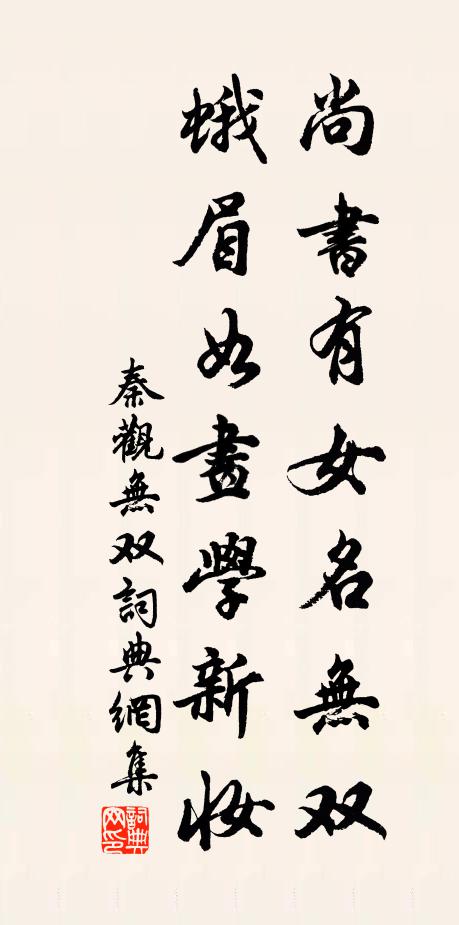 尚書有女名無双
蛾眉如畫學新妝
秦觀無双詞典網集
詞典網印